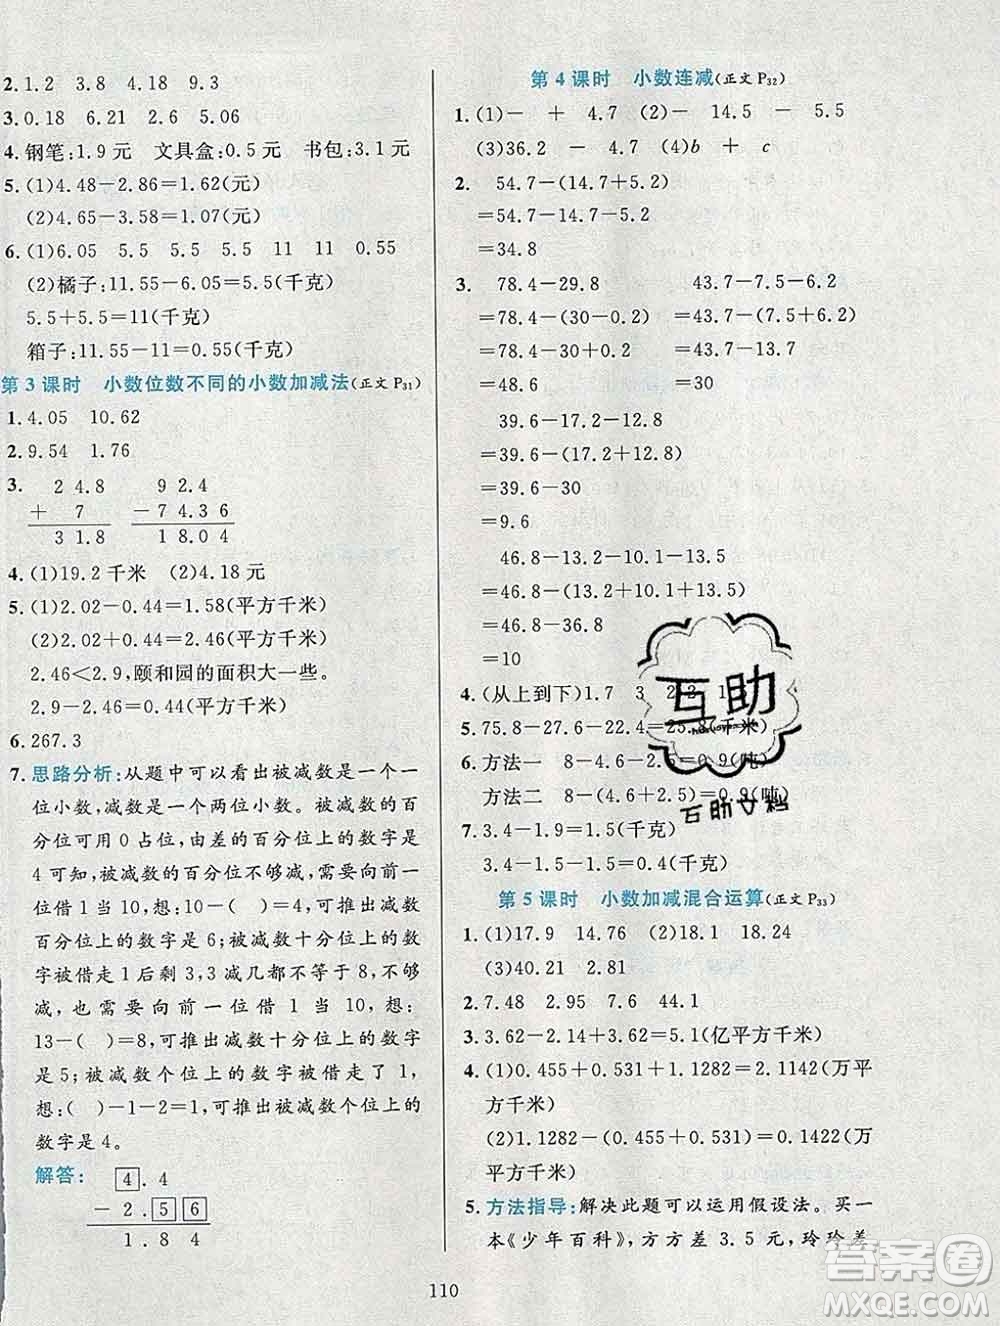 2. 1.2 3.8 4.8 9.3
3. 0.18 6.21 2.6 5.06
4. 钢笔:1.9元 文具盒:0.5元 书包:3.1元
5. (1)4.48-2.86=1.62(元)
(2)4.65-3.58=1.07(元)
6. (1)6.05 5.5 5.5 5.5 11 11 0.55
(2)橘子:11.55-6.05=5.5(千克)
5.5+5.5=11(千克)
箱子:11.55-11=0.55(千克)
第3课时 小数位数不同的小数加减法(正文P31)
1. 4.05 10.62
2. 9.54 1.76
3. 24.8 92.4
+ 7 -74.36
31.8 18.04
4. (1)19.2千米 (2)4.18元
5. (1)2.02-0.44=1.58(平方千米)
(2)2.02+0.44=2.46(平方千米)
2.46<2.9,颐和园的面积大一些。
2.9-2.46=0.44(平方千米)
6. 267.3
7. 思路分析:从题中可以看出被减数是一个一
位小数,减数是一个两位小数。被减数的百
分位可用0占位,由差的百分位上的数字是
4可知,被减数的百分位不够减,需要向前
一位借1当10,想:10-( )=4,可推出减数
百分位上的数字是6;被减数十分位上的数
字被借走1后剩3,3减几都不等于8,不够
减,也需要向前一位借1当10,想:
13-( )=8,可推出减数十分位上的数字
是5;被减数个位上的数字被借走了1,
想:( )-1-2=1,可推出被减数个位上的
数字是4。
解答: 4.4
-2.56
1.84
第4课时 小数连减(正文P32)
1. (1)- + 4.7 (2)- 14.5 - 5.5
(3)36.2 - 4.7 (4)b + c
2. 54.7-(14.7+5.2)
=54.7-14.7-5.2
=34.8
3. 78.4-29.8 43.7-7.5-6.2
=78.4-(30-0.2) =43.7-(7.5+6.2)
=78.4-30+0.2 =43.7-13.7
=48.6 =30
39.6-17.2-12.8
=39.6-(17.2+12.8)
=39.6-30
=9.6
46.8-13.2-10.1-13.5
=46.8-(13.2+10.1+13.5)
=46.8-36.8
=10
4. (从上到下)1.7 3
5. 75.8-27.6-22.4=25.8(千米)
6. 方法一 8-4.6-2.5=0.9(吨)
方法二 8-(4.6+2.5)=0.9(吨)
7. 3.4-1.9=1.5(千克)
3.4-1.5-1.5=0.4(千克)
第5课时 小数加减混合运算(正文P33)
1. (1)17.9 14.76 (2)18.1 18.24
(3)40.21 2.81
2. 7.48 2.95 7.6 44.1
3. 3.62-2.14+3.62=5.1(亿平方千米)
4. (1)0.455+0.531+0.1422=1.1282(万平
方千米)
(2)1.1282-(0.455+0.531)=0.1422(万
平方千米)
5. 方法指导:解决此题可以运用假设法。买一
本《少年百科》,方方差3.5元,玲玲差
110
互助
互助文档
答案圈
MXQE.COM